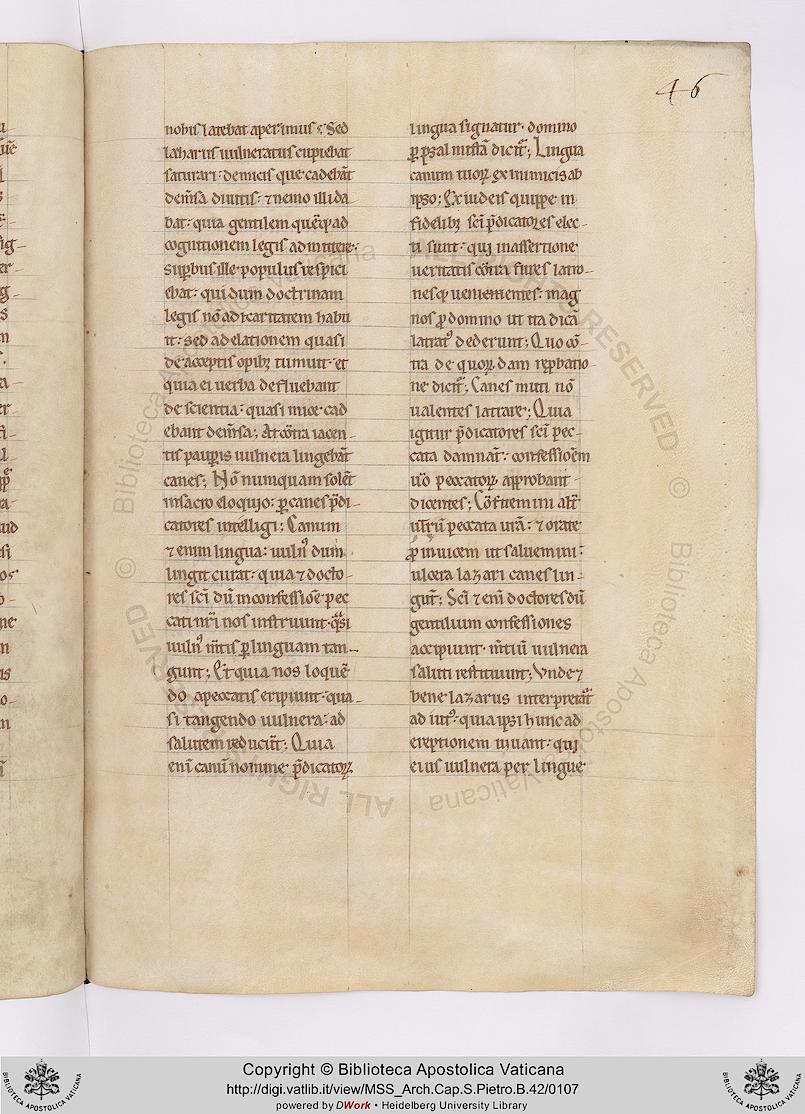 46
nobis latebat aperimus; Sed
lazarus uulneratus cupiebat
saturari: de micis que cadebāt
de mēsa diuitis: ⁊ nemo illi da
bat: quia gentilem quēq; ad
cognitionem legis admittere:
suꝑbus ille populus respici
ebat: qui dum doctrinam
legis nō ad caritatem habu
it: sed ad elationem quasi
de acceptis opibꝫ tumuit· et
quia ei uerba defluebant
de scientia: quasi mice cad
ebant de mēsa; At cōtra iacen-
tis pauꝑis uulnera lingebāt
canes; Nō numquam solēt
in sacro eloquio: ꝑ canes p̄di-
catores intelligi; Canum
⁊ enim lingua: uuln᾽ dum
lingit curat· quia ⁊ docto-
res sc̄i dū in confessiōe pec
cati nr̄i nos instruunt· q̈si
uuln᾽ m̄tis ꝑ linguam tan-
gunt; Et quia nos loquē
do a peccatis eripiunt· qua-
si tangendo uulnera: ad
salutem reducūt; Quia
eni canū nomine p̄dicatoꝝ
lingua signatur· domino
ꝑ psalmistā dicit᷑; Lingua
canum tuoꝝ ex inimicis ab
ipso; Ex iudeis quippe in
fidelibꝫ sc̄i p̄dicatores elec-
ti sunt· qui in assertione
ueritatis cōtra fures latro-
nesq; uenientes: mag
nos ꝓ domino ut ita dicā
latrat᾽ dederunt; Quo cō-
tra de quorꝝdam reꝓbatio-
ne dicit᷑; Canes muti nō
ualentes latrare; Quia
igitur p̄dicatores sc̄i pec-
cata damnāt: confessionem
u̅o peccatoꝝ approbant-
dicentes; Cōfitemini alt̅
utrū peccata ura̅: ⁊ orate
ꝓ inuicem ut saluemini:
ulcera lazari canes lin-
gūt; Sc̄i ⁊ enī doctores dū
gentilium confessiones
accipiunt· m̄tiū uulnera
saluti restituunt; Vnde ⁊
bene lazarus interpretat᷑
adiut᾽· quia ipsi hunc ad
ereptionem iuuant· qui
eius uulnera per lingue
Copyright © Biblioteca Apostolica Vaticana
http://digi.vatlib.it/view/MSS_Arch.Cap.S.Pietro.B.42/0107
powered by DWork • Heidelberg University Library